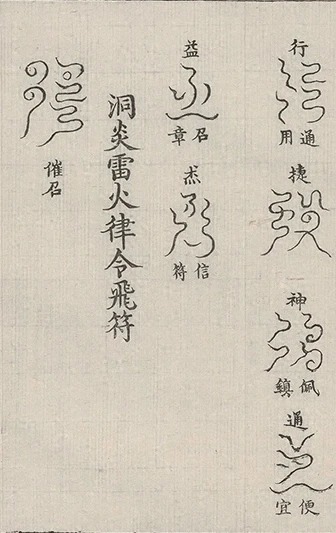 行
通用
捷
神
佩鎮
通
便宜
益
召章
信符
洞炎雷火律令飛符
催召